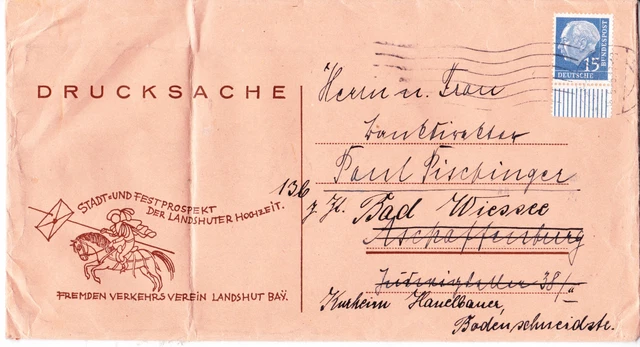 DRUCKSACHE
STADT- UND FESTPROSPEKT
DER LANDSHUTER HOCHZEIT.
FREMDEN VERKEHRS VEREIN LANDSHUT BAY.
15
DEUTSCHE
BUNDESPOST
Herrn u. Frau
Bankdirektor
Paul Fischinger
136
z. Zt. Bad Wiessee
Aschaffenburg
38/II
Kurheim Hanelbauer,
Bodenschneidstr.